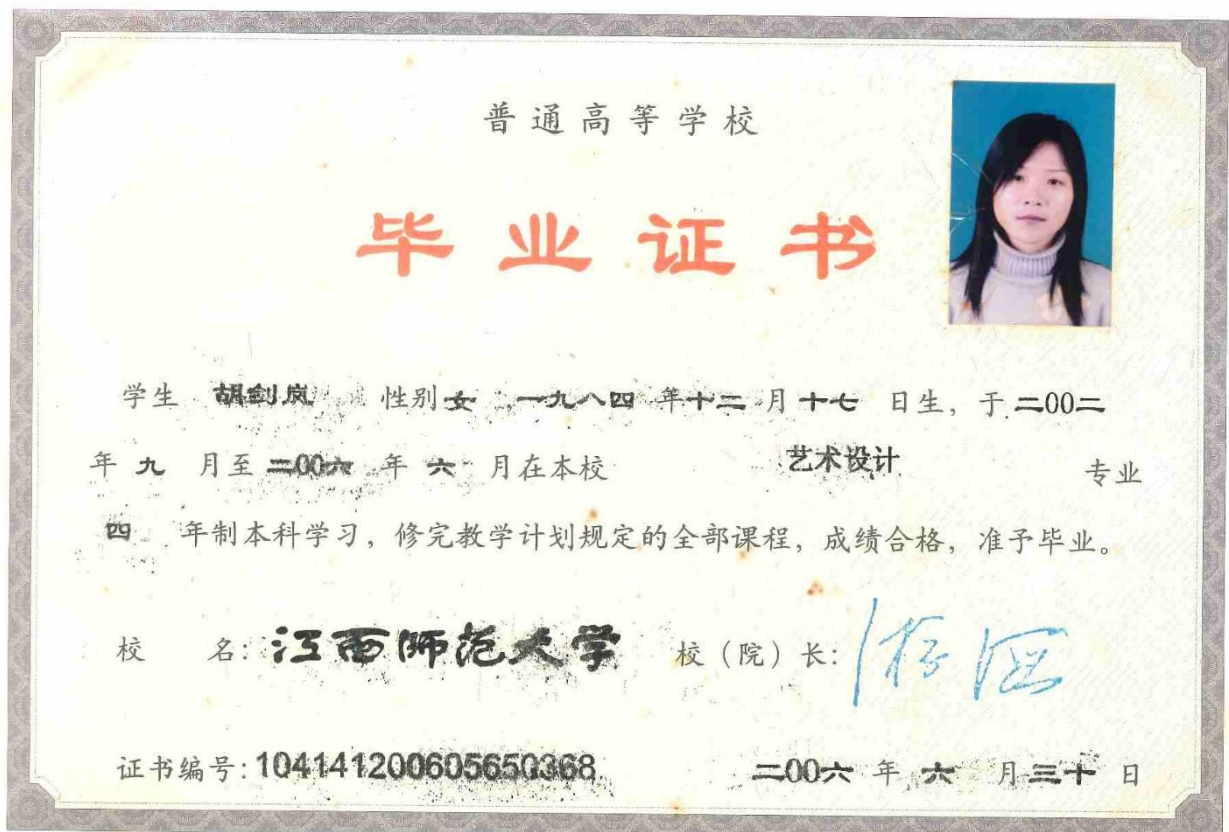 普通高等学校
毕业证书
学生 胡剑岚 性别 女 ,一九八四 年 十二 月 十七 日生, 于 二00二
年 九 月至 二00六 年 六 月在本校 艺术设计 专业
四 年制本科学习, 修完教学计划规定的全部课程, 成绩合格, 准予毕业。
校 名: 江西师范大学 校 (院) 长:
证书编号: 104141200605650368 二00六 年 六 月 三十 日